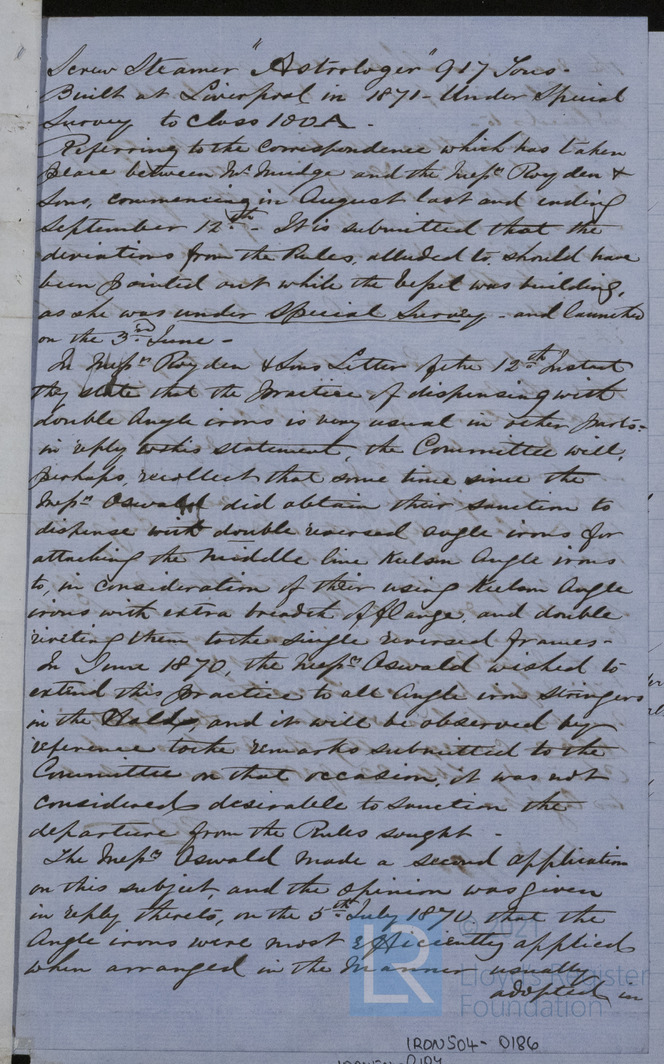 Screw Steamer "Astrologer" 917 Tons -
Built at Liverpool in 1871 - Under Special
Survey to Class 100A -
Referring to the Correspondence which has taken
place between Mr. Mudge and the Messrs Royden &
Sons, commencing in August last and ending
September 12th - It is submitted that the
deviations from the Rules, alluded to, should have
been pointed out while the Vessel was building,
as she was under Special Survey - and launched
on the 3rd June -
In Messrs Royden & Sons Letter of the 12th Instant
they state that the practise of dispensing with
double Angle irons is very usual in other parts -
in reply to this statement, the Committee will,
perhaps, recollect that some time since the
Messrs Oswald did obtain their sanction to
dispense with double reversed angle irons for
attaching the middle line Keelson Angle irons
to, in consideration of their using Keelson Angle
irons with extra breadth of flange, and double
riveting them to the single reversed frames -
In June 1870, the Messrs Oswald wished to
extend this practice to all Angle iron stringers
in the Holds, and it will be observed by
reference to the remarks submitted to the
Committee on that occasion, it was not
considered desirable to sanction the
departure from the Rules sought -
The Messrs Oswald made a second application
on this subject, and the opinion was given
in reply thereto, on the 5th July 1870, that the
Angle irons were most efficiently applied
when arranged in the manner usually
adopted in
© 2021
LR
Lloyd's Register
Foundation
IRON504-0186